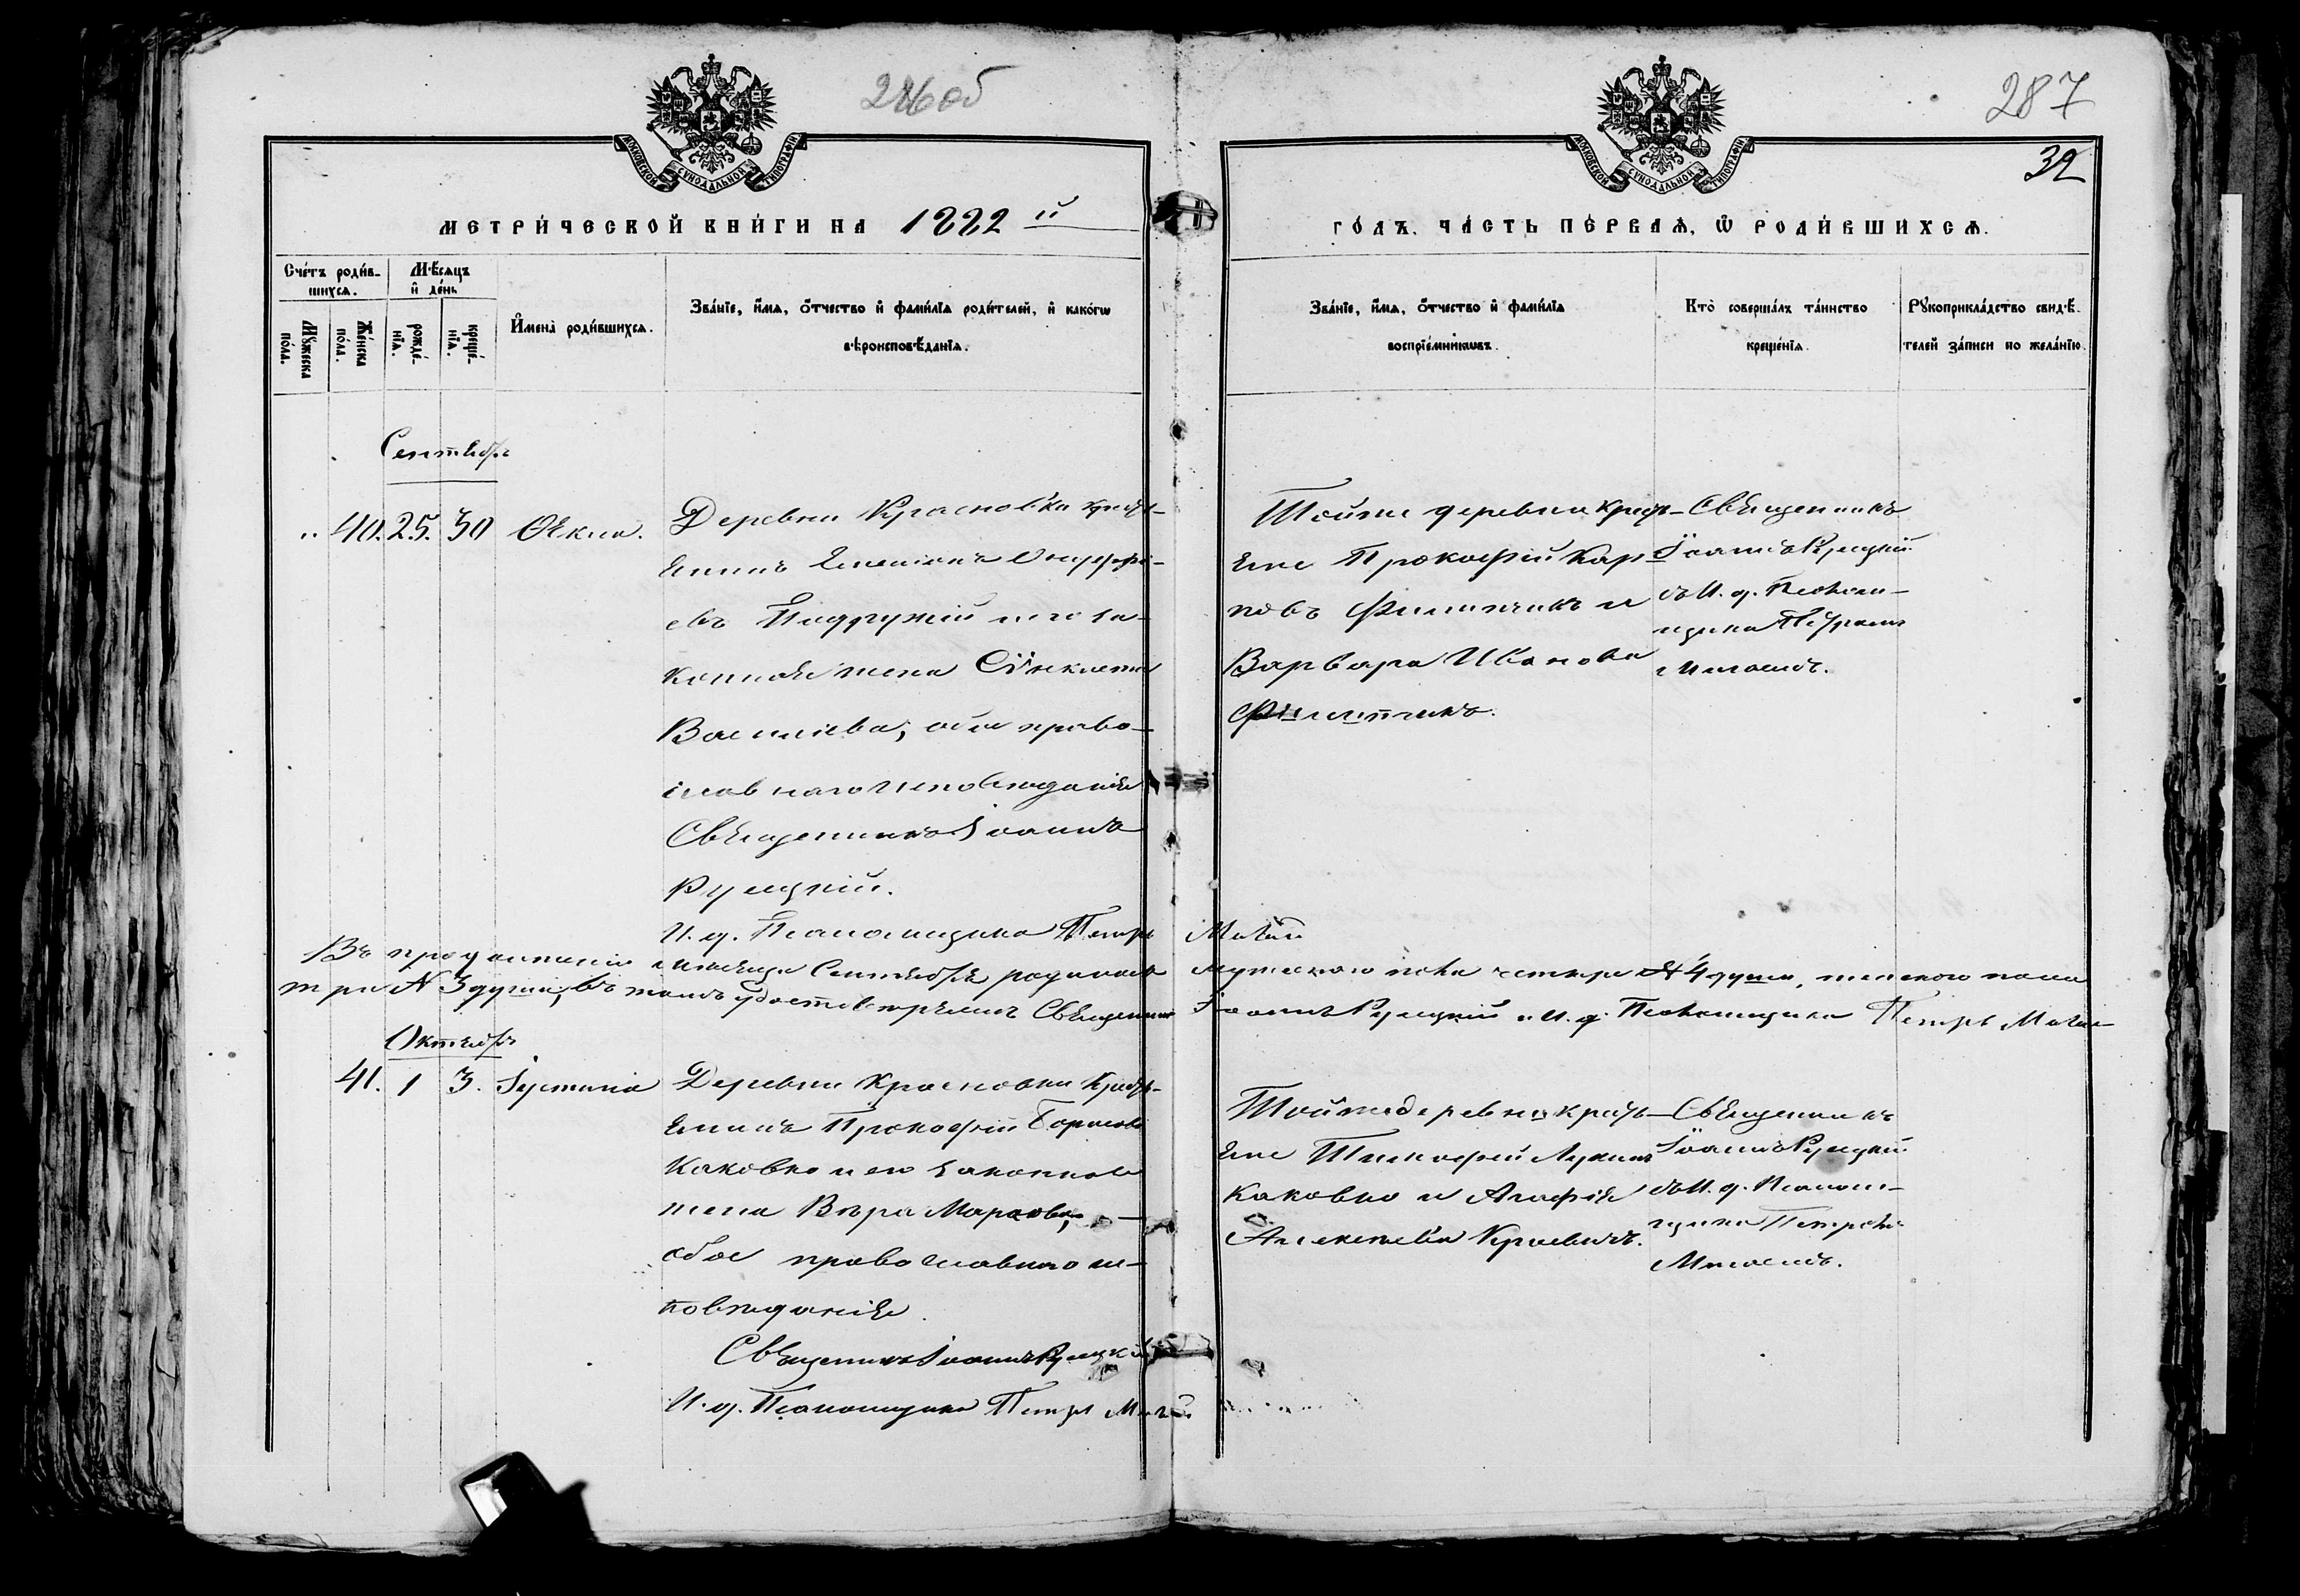 286об
287
32
МОСКОВСКОЙ СѴНОДАЛЬНОЙ ТИПОГРАФІИ
МОСКОВСКОЙ СѴНОДАЛЬНОЙ ТИПОГРАФІИ
МЕТРИ́ЧЕСКОЙ КНИ́ГИ НА 1882 й
ГО́ДЪ. ЧА́СТЬ ПЕ́РВАѦ, Ѡ РОДИ́ВШИХСѦ.
Сче́тъ роди́в-
шихсѧ.
Мꙋ́жеска по́ла.
Же́нска по́ла.
Мѣ́сѧцъ и де́нь
рожде́-нїѧ.
креще́-нїѧ.
Имена̀ роди́вшихсѧ.
Зва́нїе, и́мѧ, ѻ҆́тчество и҆ фами́лїѧ роди́телей, и҆ како́гѡ
вѣроисповѣ́данїѧ.
Зва́нїе, и́мѧ, ѻ҆́тчество и҆ фами́лїѧ
воспрїе́мникѡвъ.
Кто̀ соверша́лъ та́инство
креще́нїѧ.
Рꙋкоприкла́дство свидѣ́-
телей за́писи по жела́нїю.
Сентябрь
" 40. 25. 30 Ѳекла.
Деревни Красновки кресть-
янинъ Онуфрі-
евъ и его за-
конная жена Сѵнклетія
Василіева, обое право-
славнаго исповѣданія
Священникъ Іоаннъ
Рулицкій.
И. д. Псаломщика Петръ
Тойже деревни кресть-
яне Прокофій Кар-
повъ Филипчикъ и
Варвара Иванова
Филипчикъ.
Священникъ
Іоаннъ Рулицкій
съ И. д. Псалом-
щика Петромъ
Въ продолженіи мѣсяца Сентября родилось мужескаго пола четыре № 4 души, женскаго пола
три № 3 души, въ томъ удостовѣряемъ Священникъ Іоаннъ Рулицкій и И. д. Псаломщика Петръ
Октябрь
41. 1 3. Іустинія
Деревни Красновки Кресть-
янинъ Прокофій Борисовъ
Каковко и его законная
жена Вѣра Маркова,
обое православнаго ис-
повѣданія.
Священникъ Іоаннъ Рулицкій
И. д. Псаломщика Петръ
Тойже деревни кресть-
яне Тимофей Лукинъ
Каковко и Агафія
Алексѣева
Священникъ
Іоаннъ Рулицкій
съ И. д. Псалом-
щика Петромъ